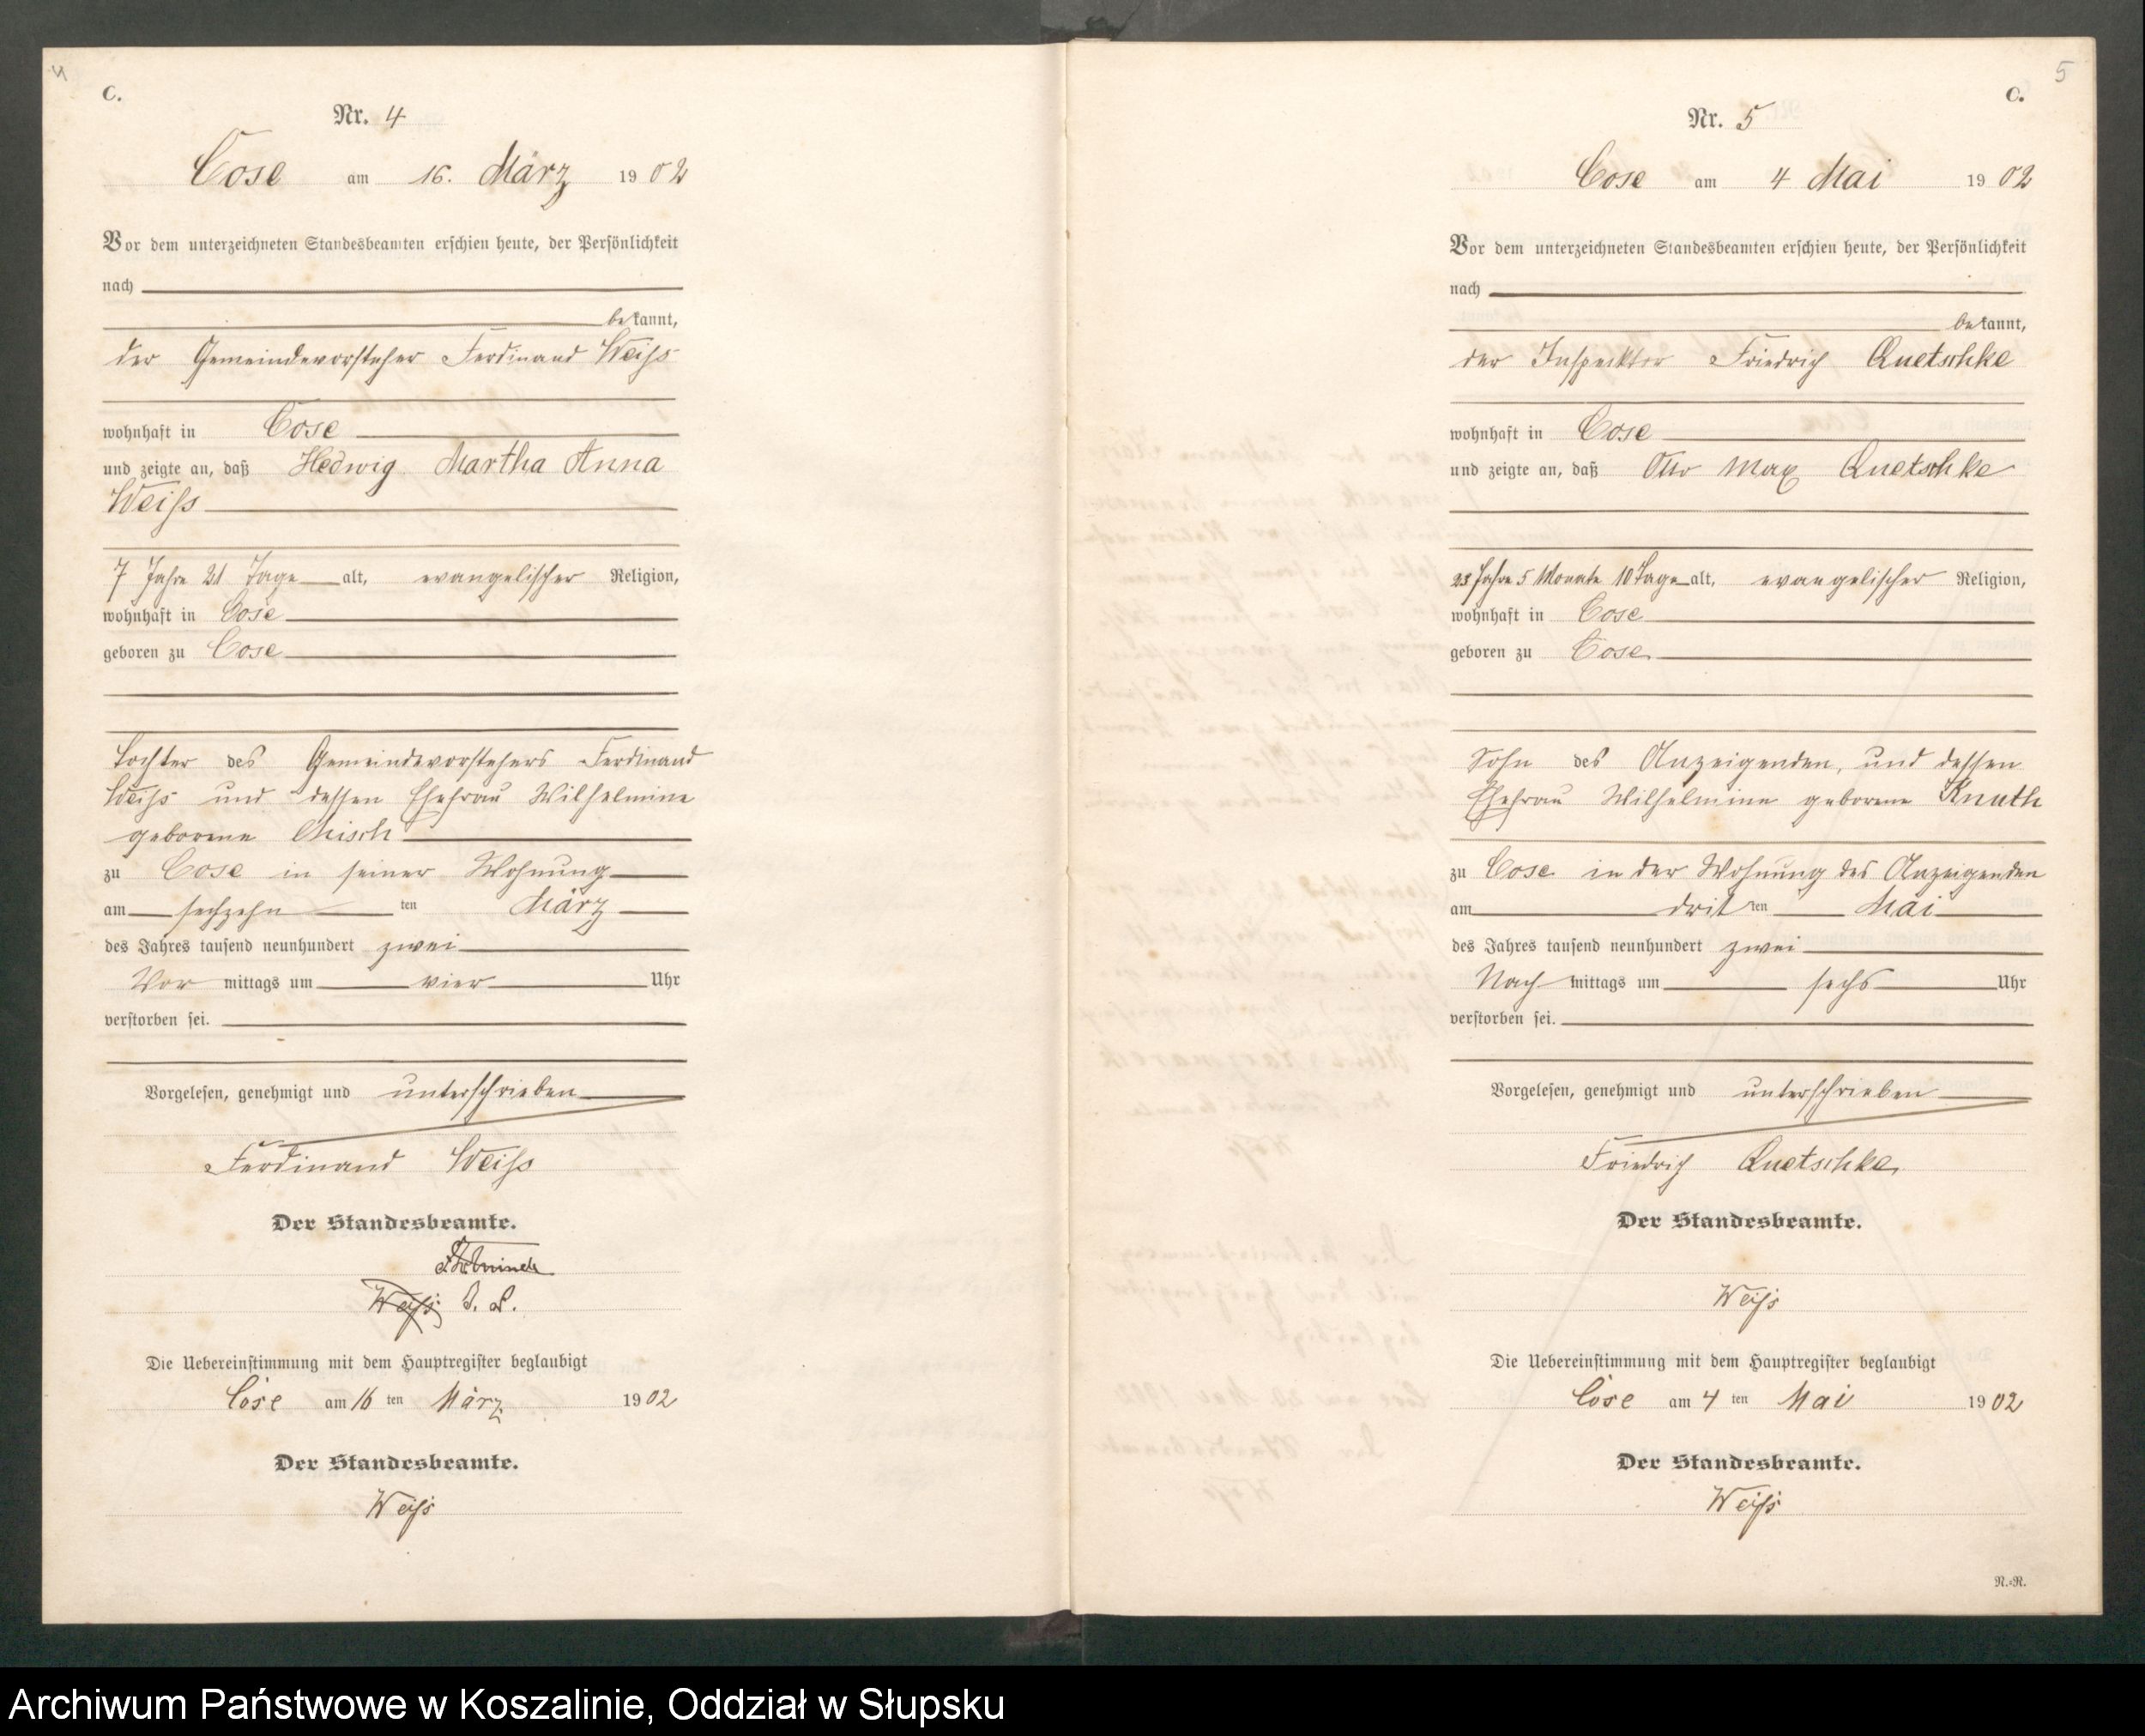 4
C.
Nr. 4
Cose am 16. März 1902
Vor dem unterzeichneten Standesbeamten erschien heute, der Persönlichkeit
nach
bekannt,
der Gemeindevorsteher Ferdinand Weiß
wohnhaft in Cose
und zeigte an, daß Hedwig Martha Anna
Weiß
7 Jahre 21 Tage alt, evangelischer Religion,
wohnhaft in Cose
geboren zu Cose
Tochter des Gemeindevorstehers Ferdinand
Weiß und dessen Ehefrau Wilhelmine
geborene Misch
zu Cose in seiner Wohnung
am sechzehn ten März
des Jahres tausend neunhundert zwei
Vor mittags um vier Uhr
verstorben sei.
Vorgelesen, genehmigt und unterschrieben
Ferdinand Weiß
Der Standesbeamte.
Weiß
Die Uebereinstimmung mit dem Hauptregister beglaubigt
Cose am 16 ten März 1902
Der Standesbeamte.
Weiß
5
C.
Nr. 5
Cose am 4 Mai 1902
Vor dem unterzeichneten Standesbeamten erschien heute, der Persönlichkeit
nach
bekannt,
der Inspecktor Friedrich Quetschke
wohnhaft in Cose
und zeigte an, daß Otto Max Quetschke
23 Jahre 5 Monate 10 Tage alt, evangelischer Religion,
wohnhaft in Cose
geboren zu Cose
Sohn des Anzeigenden, und dessen
Ehefrau Wilhelmine geborene Knuth
zu Cose in der Wohnung des Anzeigenden
am drit ten Mai
des Jahres tausend neunhundert zwei
Nach mittags um sechs Uhr
verstorben sei.
Vorgelesen, genehmigt und unterschrieben
Friedrich Quetschke
Der Standesbeamte.
Weiß
Die Uebereinstimmung mit dem Hauptregister beglaubigt
Cose am 4 ten Mai 1902
Der Standesbeamte.
Weiß
N.=N.
Archiwum Państwowe w Koszalinie, Oddział w Słupsku